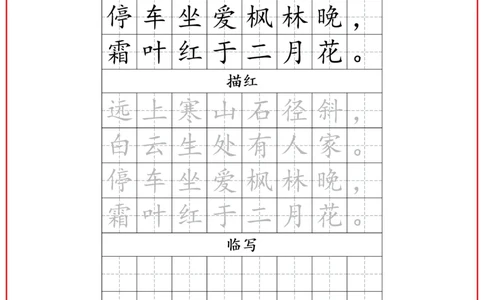 停车坐爱枫林晚，
霜叶红于二月花。
描红
远上寒山石径斜，
白云生处有人家。
停车坐爱枫林晚，
霜叶红于二月花。
临写